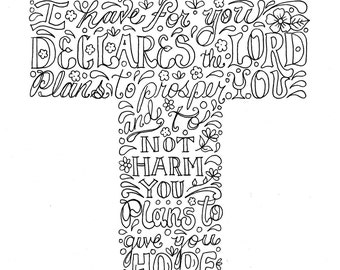 I have for you
DECLARES the LORD
Plans to prosper YOU
and to
NOT
HARM
YOU
Plans to
give you
HOPE